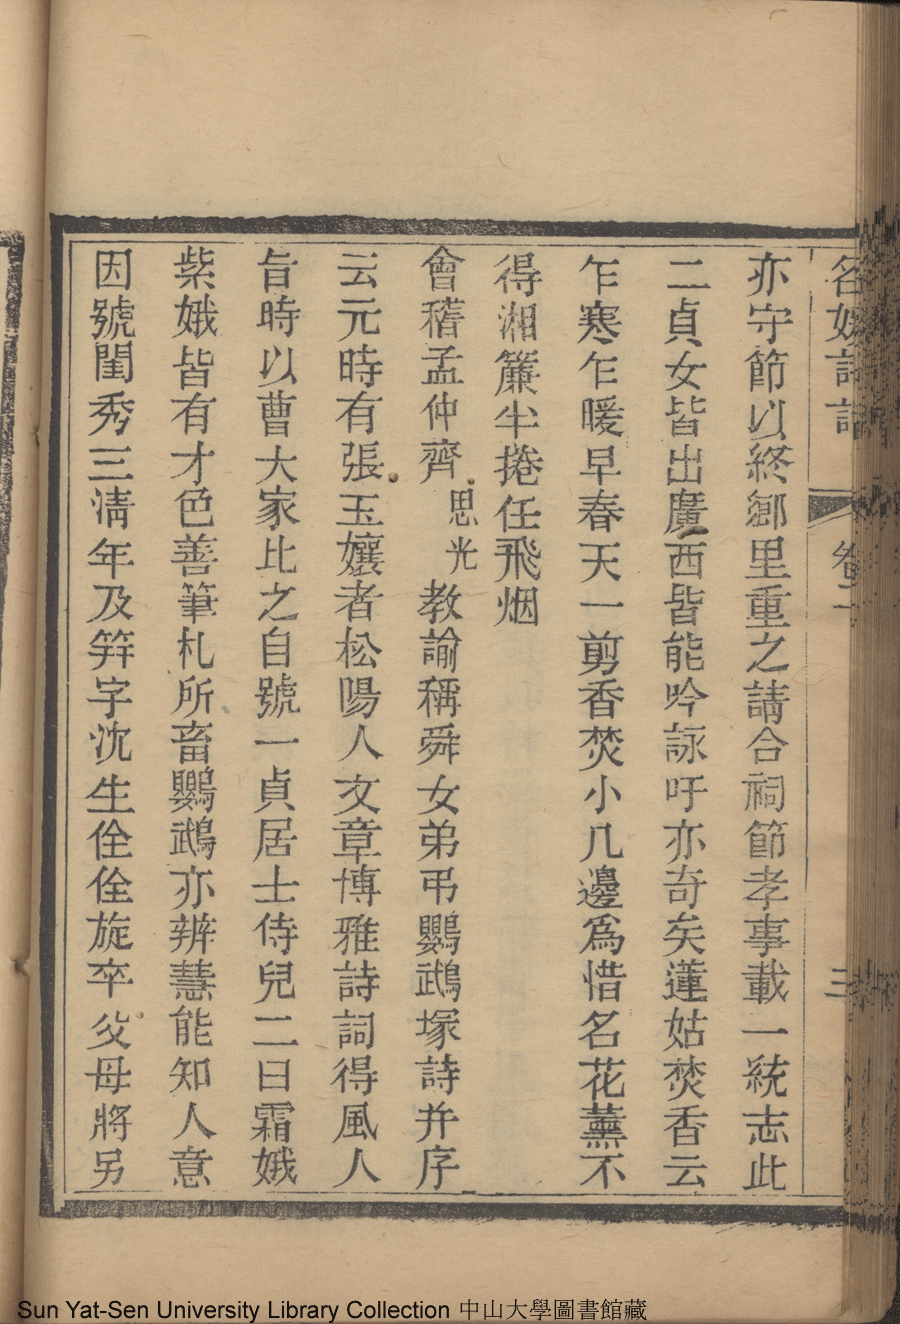 名媛詩話 卷二 三
亦守節以終鄉里重之請合祠節孝事載一統志此
二貞女皆出廣西皆能吟詠吁亦奇矣蓮姑焚香云
乍寒乍暖早春天一剪香焚小几邊爲惜名花薰不
得湘簾半捲任飛烟
會稽孟仲齊思光教諭稱舜女弟弔鸚鵡塚詩并序
云元時有張玉孃者松陽人文章博雅詩詞得風人
旨時以曹大家比之自號一貞居士侍兒二曰霜娥
紫娥皆有才色善筆札所畜鸚鵡亦辨慧能知人意
因號閨秀三清年及笄字沈生佺佺旋卒父母將另
Sun Yat-Sen University Library Collection 中山大學圖書館藏